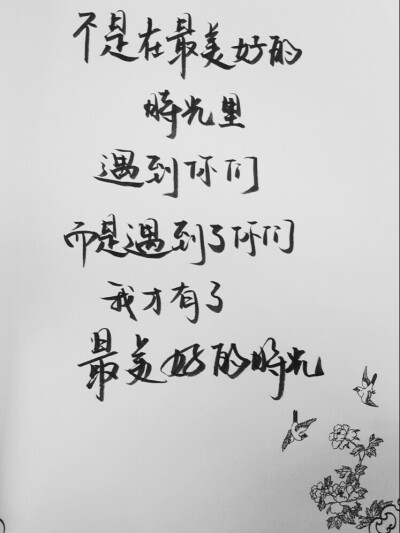 不是在最美好的
時光里
遇到你们
而是遇到了你们
我才有了
最美好的時光